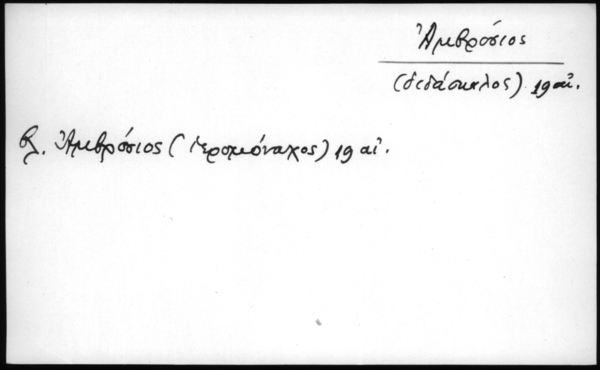 Ἀμβρόσιος
(διδάσκαλος) 19 αἰ.
βλ. Ἀμβρόσιος (ἱερομόναχος) 19 αἰ.